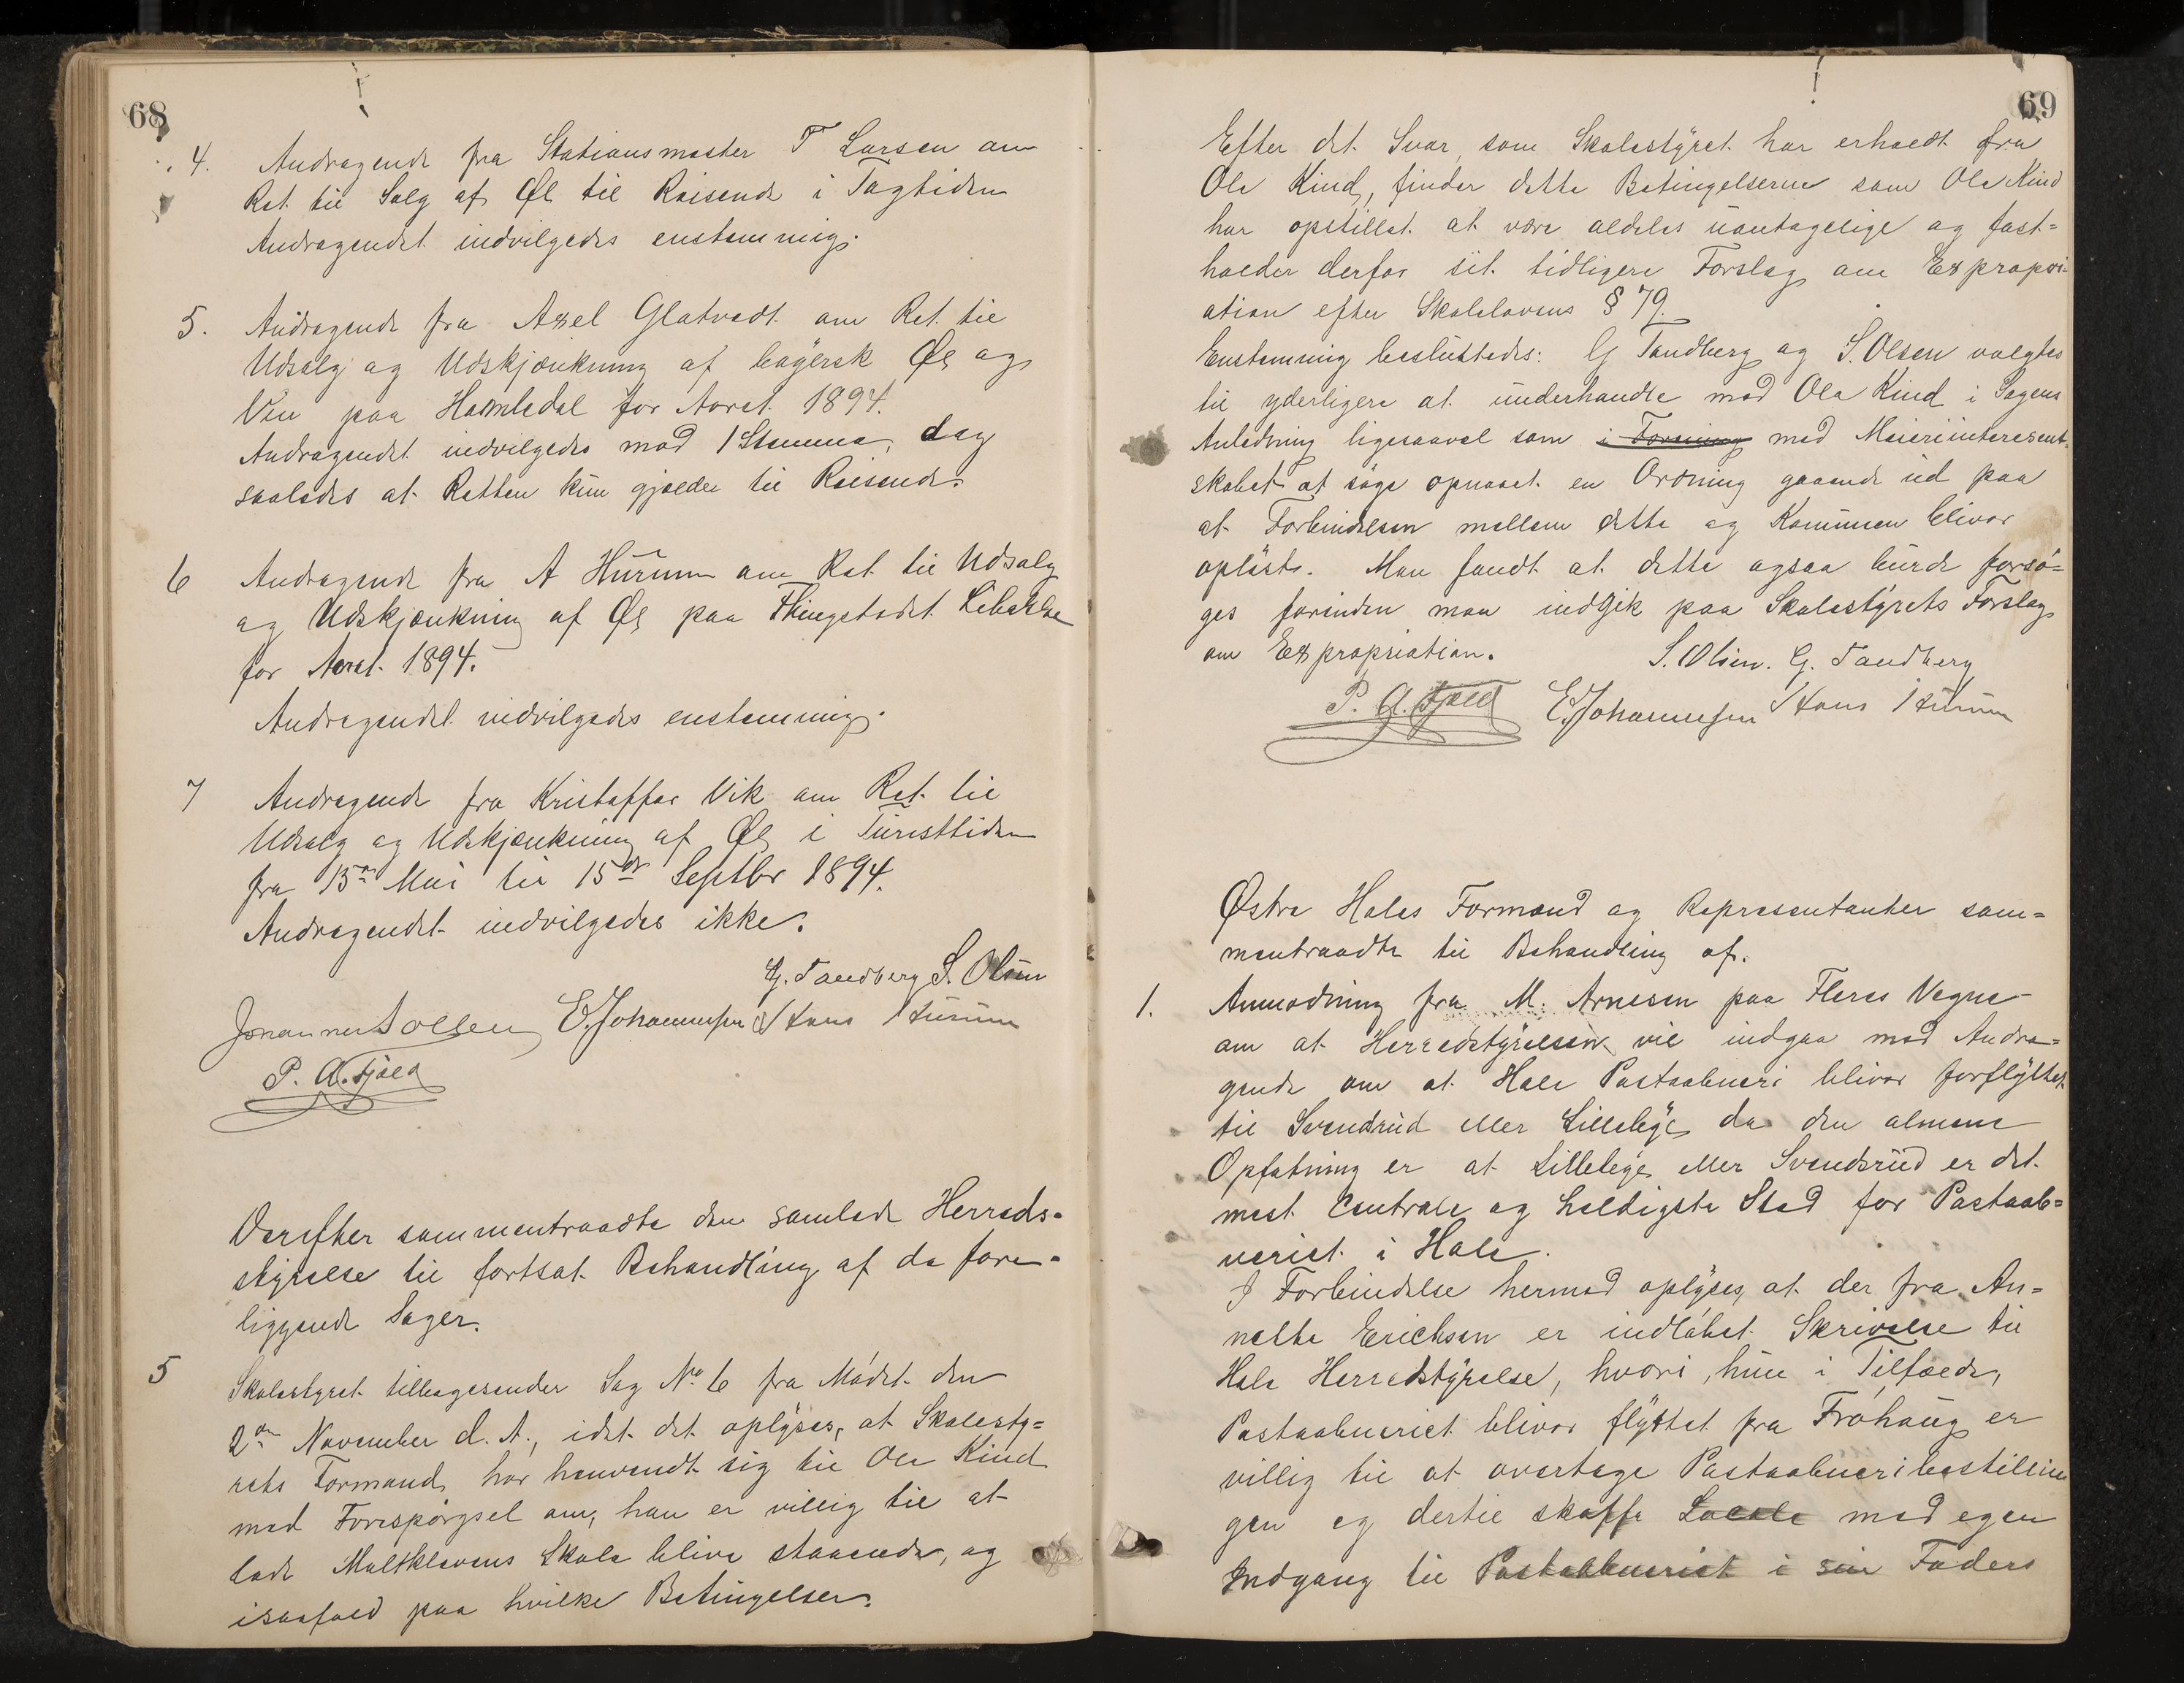 68
4. Andragende fra Stationsmester T Larsen om
Ret til Salg af Øl til Reisende i Togtiden
Andragendet indvilgedes enstemmig.
5. Andragende fra Axel Glatvedt om Ret til
Udsalg og Udskjænkning af bayersk Øl og
Vin paa Hamledal for Aaret 1894.
Andragendet indvilgedes mod 1 Stemme, dog
saaledes at Retten kun gjælder til Reisende.
6 Andragende fra A Hurum om Ret til Udsalg
og Udskjænkning af Øl paa Thingstedet Lebakke
for Aaret 1894.
Andragendet indvilgedes enstemmig.
7 Andragende fra Kristoffer Vik om Ret til
Udsalg og Udskjænkning af Øl i Turisttiden
fra 15de Mai til 15de Septbr 1894.
Andragendet indvilgedes ikke.
G. Tandberg S. Olsen
Johannes Solsen E. Johannessen Hans Hurum
P. A. Fjeld
Derefter sammentraadte den samlede Herreds-
styrelse til fortsat Behandling af de fore-
liggende Sager.
5 Skolestyret tilbagesender Sag No 6 fra Mødet den
2den November d. A., idet det oplyses, at Skolesty=
rets Formand har henvendt sig til Ole Kind
med Forespørgsel om, han er villig til at
lade Maltklevens Skole blive staaende, og
isaafald paa hvilke Betingelser.
69
Efter det Svar, som Skolestyret har erholdt fra
Ole Kind, finder dette Betingelserne som Ole Kind
har opstillet at være aldeles uantagelige og fast=
holder derfor sit tidligere Forslag om Expropri-
ation efter Skolelovens § 79.
Enstemmig besluttedes: G Tandberg og S. Olsen valgtes
til yderligere at underhandle med Ole Kind i Sagens
Anledning ligesaavel som i Forening med Meieriinteresent-
skabet at søge opnaaet en Ordning gaaende ud paa
at Forbindelsen mellem dette og Kommunen bliver
opløste. Man fandt at dette ogsaa burde forsø=
ges forinden man indgik paa Skolestyrets Forslag
om Expropriation.
S. Olsen. G. Tandberg
P. A. Fjeld E. Johannessen Hans Hurum
Østre Holes Formænd og Representanter sam=
mentraadte til Behandling af.
1. Anmodning fra M. Arnesen paa Fleres Vegne
om at Herredstyrelsen vil indgaa med Andra=
gende om at Hole Postaabneri bliver forflyttet
til Svendsrud eller Lillebye, da den almene
Opfatning er at Lillebye eller Svendsrud er det
mest Centrale og heldigste Sted for Postaab=
neriet i Hole.
I Forbindelse hermed oplyses, at der fra An=
nette Erichsen er indløbet Skrivelse til
Hole Herredstyrelse, hvori hun i Tilfælde,
Postaabneriet bliver flyttet fra Frøhaug er
villig til at overtage Postaabneribestillin
gen og dertil skaffe Locale med egen
Indgang til Postaabneriet i sin Faders